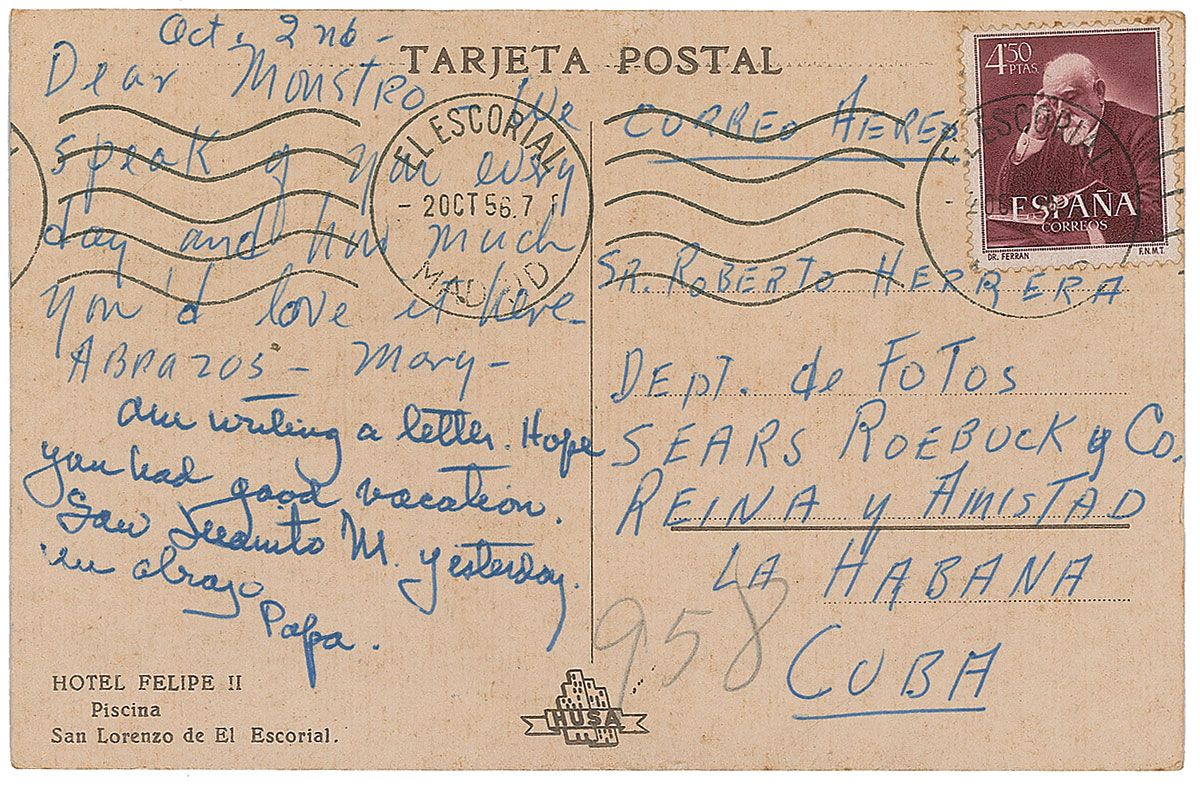 Oct. 2nd-
TARJETA POSTAL
Dear Monstro - We
speak of you every
day and how much
you'd love it here-
ABRAZOS - Mary-
Am writing a letter. Hope
you had good vacation.
Saw Juanito M. yesterday.
un abrazo
Papa.
HOTEL FELIPE II
Piscina
San Lorenzo de El Escorial.
EL ESCORIAL
-2 OCT 56.7
MADRID
HUSA
4'50
PTAS
ESPAÑA
CORREOS
DR. FERRAN
F.N.M.T.
EL ESCORIAL
CORREO AEREO
SR. ROBERTO HERRERA
DEPT. de FOTOS
SEARS ROEBUCK y Co.
REINA y AMISTAD
LA HABANA
CUBA
958